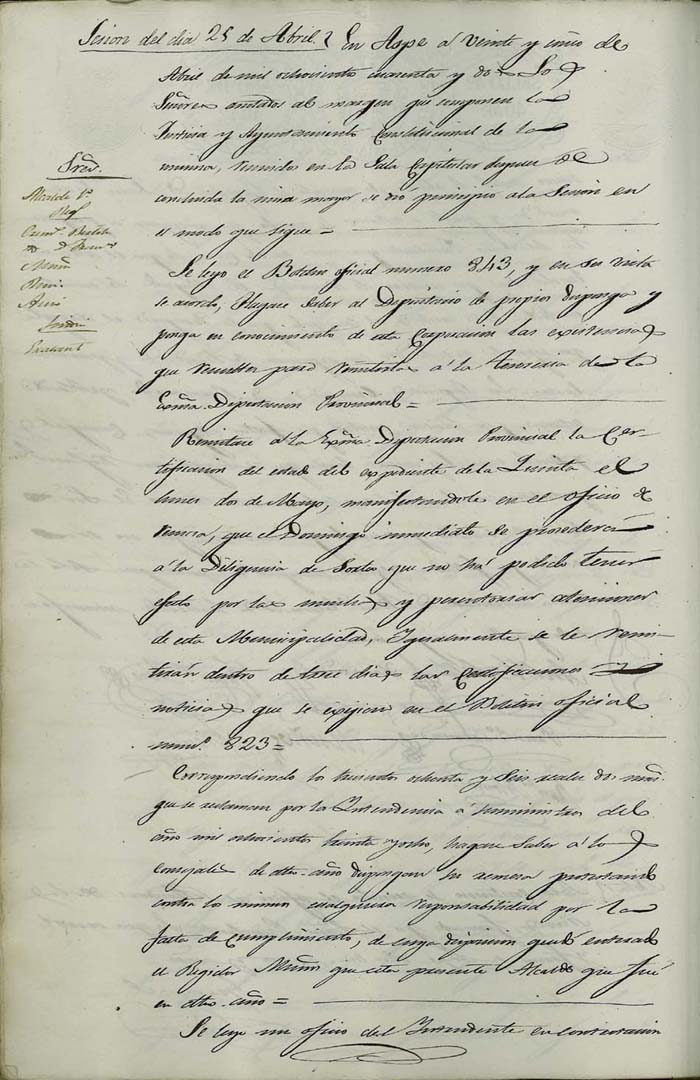 Sesion del dia 25 de Abril. En Aspe á veinte y cinco de
Abril de mil ochociento cuarenta y dos Los
Señores anotados al margen que componen la
Justicia y Ayuntamiento Constitucional de la
misma, reunidos en la Sala Capitular despues de
concluida la misa mayor se dió principio a la Sesion en
el modo que sigue =
Sres.
Alcalde 1º
Muñ
Se leyo el Boletin oficial numero 843, y en su vista
se acordó, Hagase saber al Depositario de propios disponga y
ponga en conocimiento de esta Corporacion las existencias
que resulten para remitirlas á la tesoreria de la
Exma. Diputacion Provincial =
Remitase á la Exma Diputacion Provincial la Cer-
tificacion del estado del expediente de la Quinta el
lunes dos de Mayo, manifestandole en el oficio de
remicion, que el Domingo immediato se procederá
á la Diligencia de Sorteo que no há podido tener
efecto por las muchas y perentorias atenciones
de esta Municipalidad, Ygualmente se le remi-
tirán dentro de trece dias las Certificaciones
noticias que se exijieron en el Boletin oficial
num.º 823 =
Correspondiendo los trescientos ochenta y Seis reales dos mrs.
que se reclaman por la Yntendencia á suministros del
año mil ochocientos treinta y ocho, hagase saber á los
concejales de dho. año dispongan su remesa protestando
contra los mismos cualquiera responsabilidad por la
falta de cumplimiento, de cuya disposicion quedó enterado
el Regidor Muñoz que esta presente Alcalde que fué
en dho. año =
Se leyo un oficio del Yntendente en contestacion